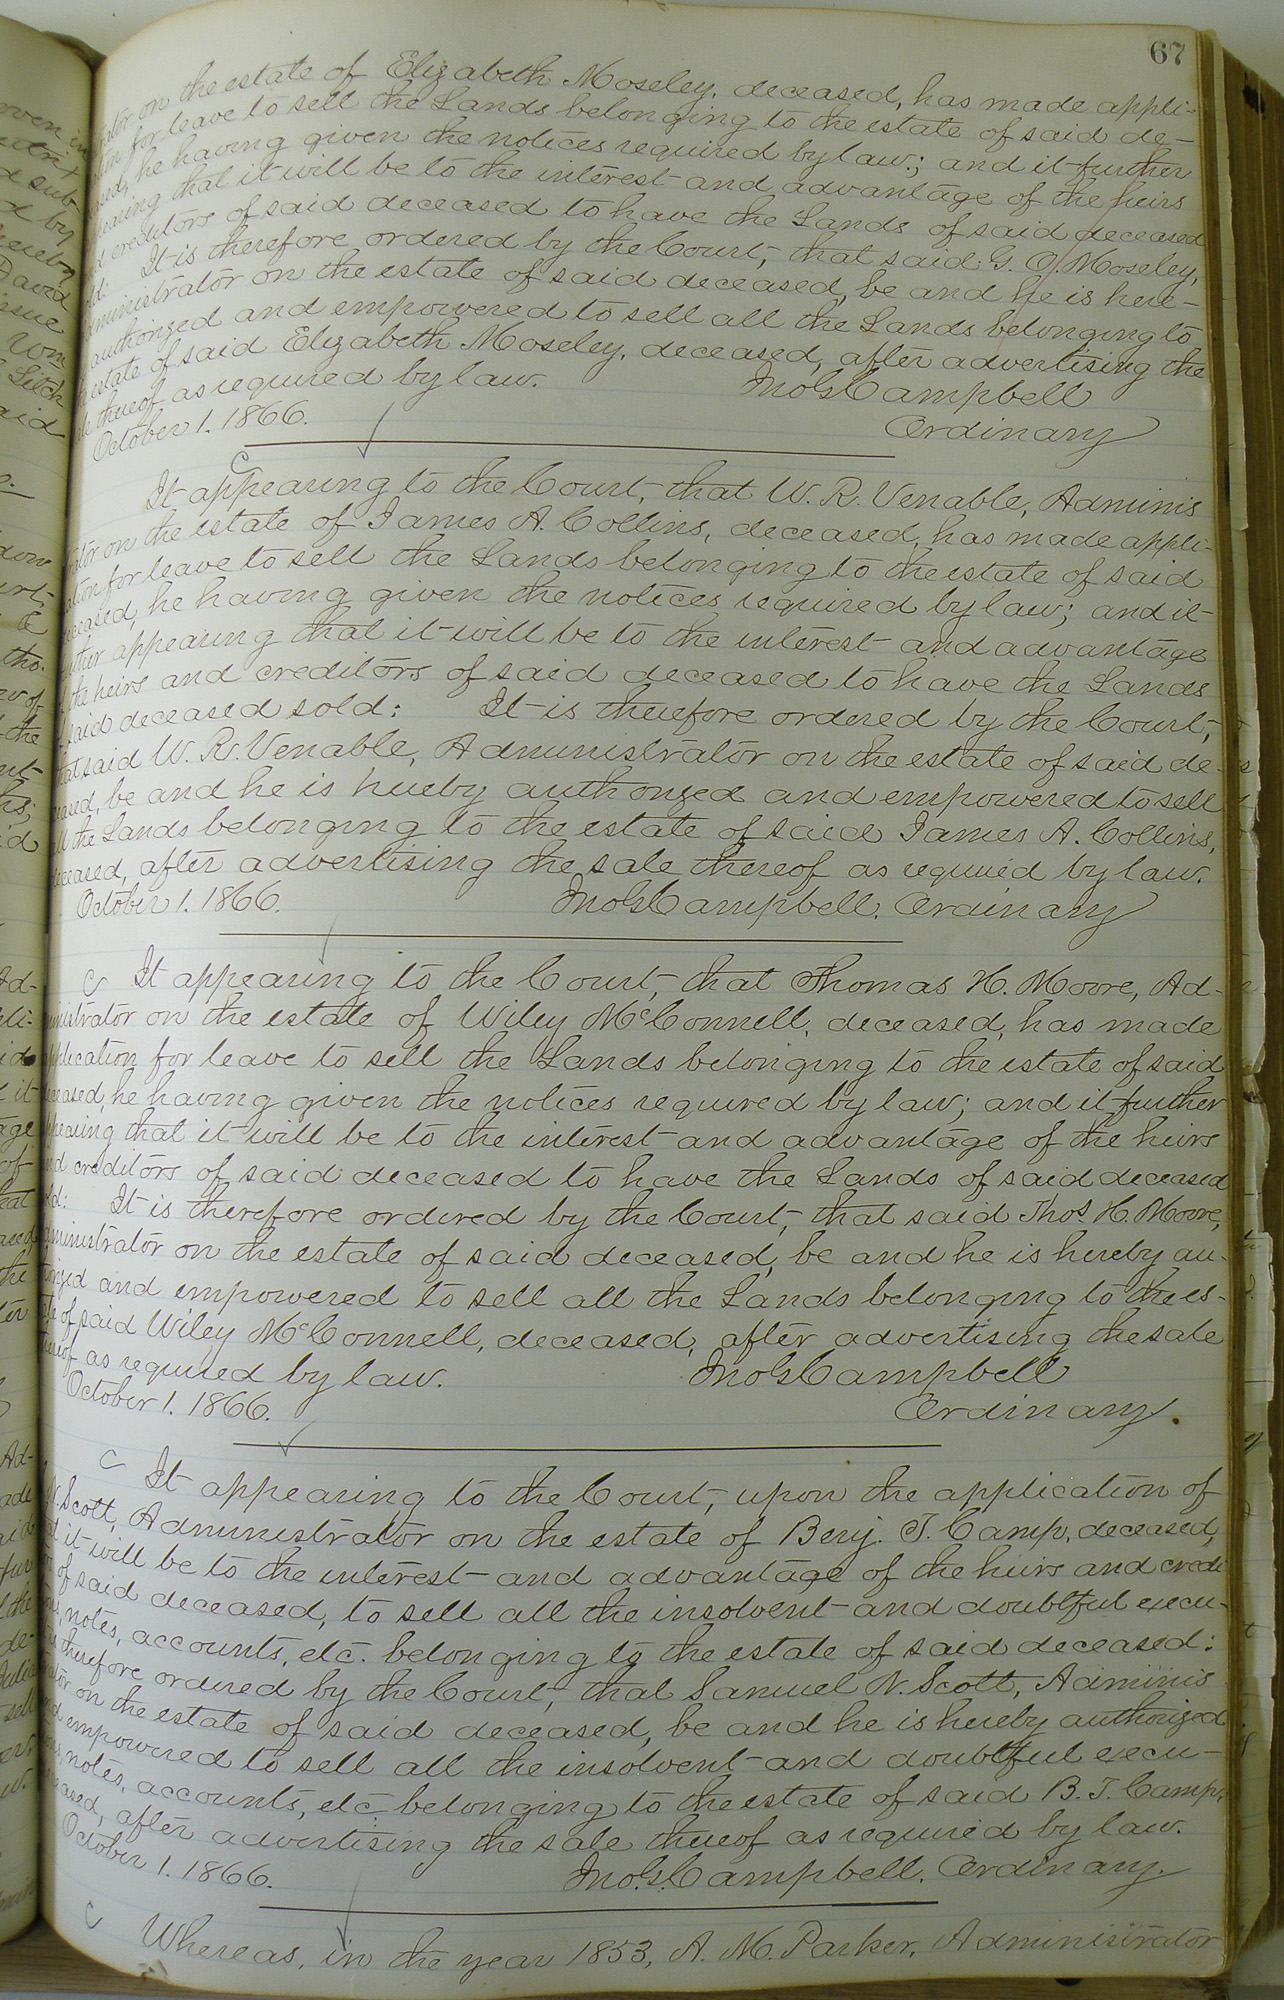 67
on the estate of Elizabeth Moseley, deceased, has made appli-
for leave to sell the Lands belonging to the estate of said de-
he having given the notices required by law; and it further
that it will be to the interest and advantage of the heirs
creditors of said deceased to have the Lands of said deceased
It is therefore ordered by the Court, that said G. O. Moseley,
ministrator on the estate of said deceased, be and he is here-
authorized and empowered to sell all the Lands belonging to
estate of said Elizabeth Moseley, deceased, after advertising the
thereof as required by law. Jno G Campbell
October 1. 1866. Ordinary
C
It appearing to the Court, that W. R. Venable, Adminis
ator on the estate of James A. Collins, deceased, has made appli-
ation for leave to sell the Lands belonging to the estate of said
eceased, he having given the notices required by law; and it
ther appearing that it will be to the interest and advantage
the heirs and creditors of said deceased to have the Lands
said deceased sold: It is therefore ordered by the Court,
at said W. R. Venable, Administrator on the estate of said de-
eased, be and he is hereby authorized and empowered to sell
ll the Lands belonging to the estate of said James A. Collins,
eceased, after advertising the sale thereof as required by law.
October 1. 1866. Jno G Campbell. Ordinary
C It appearing to the Court, that Thomas H. Moore, Ad-
inistrator on the estate of Wiley McConnell, deceased, has made
pplication for leave to sell the Lands belonging to the estate of said
eceased, he having given the notices required by law; and it further
ppearing that it will be to the interest and advantage of the heirs
nd creditors of said deceased to have the Lands of said deceased
ld: It is therefore ordered by the Court, that said Thos H. Moore,
dministrator on the estate of said deceased, be and he is hereby au-
rized and empowered to sell all the Lands belonging to the es-
te of said Wiley McConnell, deceased, after advertising the sale
thereof as required by law. Jno G Campbell
October 1. 1866. Ordinary.
C It appearing to the Court, upon the application of
N. Scott, Administrator on the estate of Benj. T. Camp, deceased,
it will be to the interest and advantage of the heirs and credi
of said deceased, to sell all the insolvent and doubtful execu-
notes, accounts, etc. belonging to the estate of said deceased:
therefore ordered by the Court, that Samuel N. Scott, Adminis
ator on the estate of said deceased, be and he is hereby authorized
nd empowered to sell all the insolvent and doubtful execu-
notes, accounts, etc belonging to the estate of said B. T. Camp,
eased, after advertising the sale thereof as required by law.
October 1. 1866. Jno. G. Campbell. Ordinary.
C Whereas, in the year 1853, A. M. Parker, Administrator